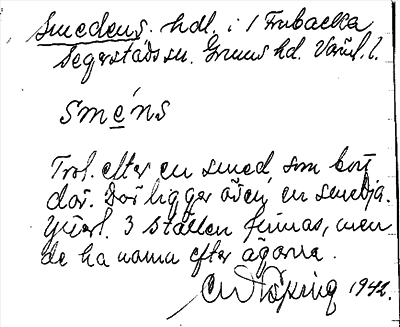 Smedens. hdl. i 1 Frubacka
Segerstads sn. Grums hd. Värml. l.
Sméns
Trol. efter en smed, som bott
där. Där ligger även en smedja.
Ytterl. 3 ställen finnas, men
de ha namn efter ägarna.
1942.